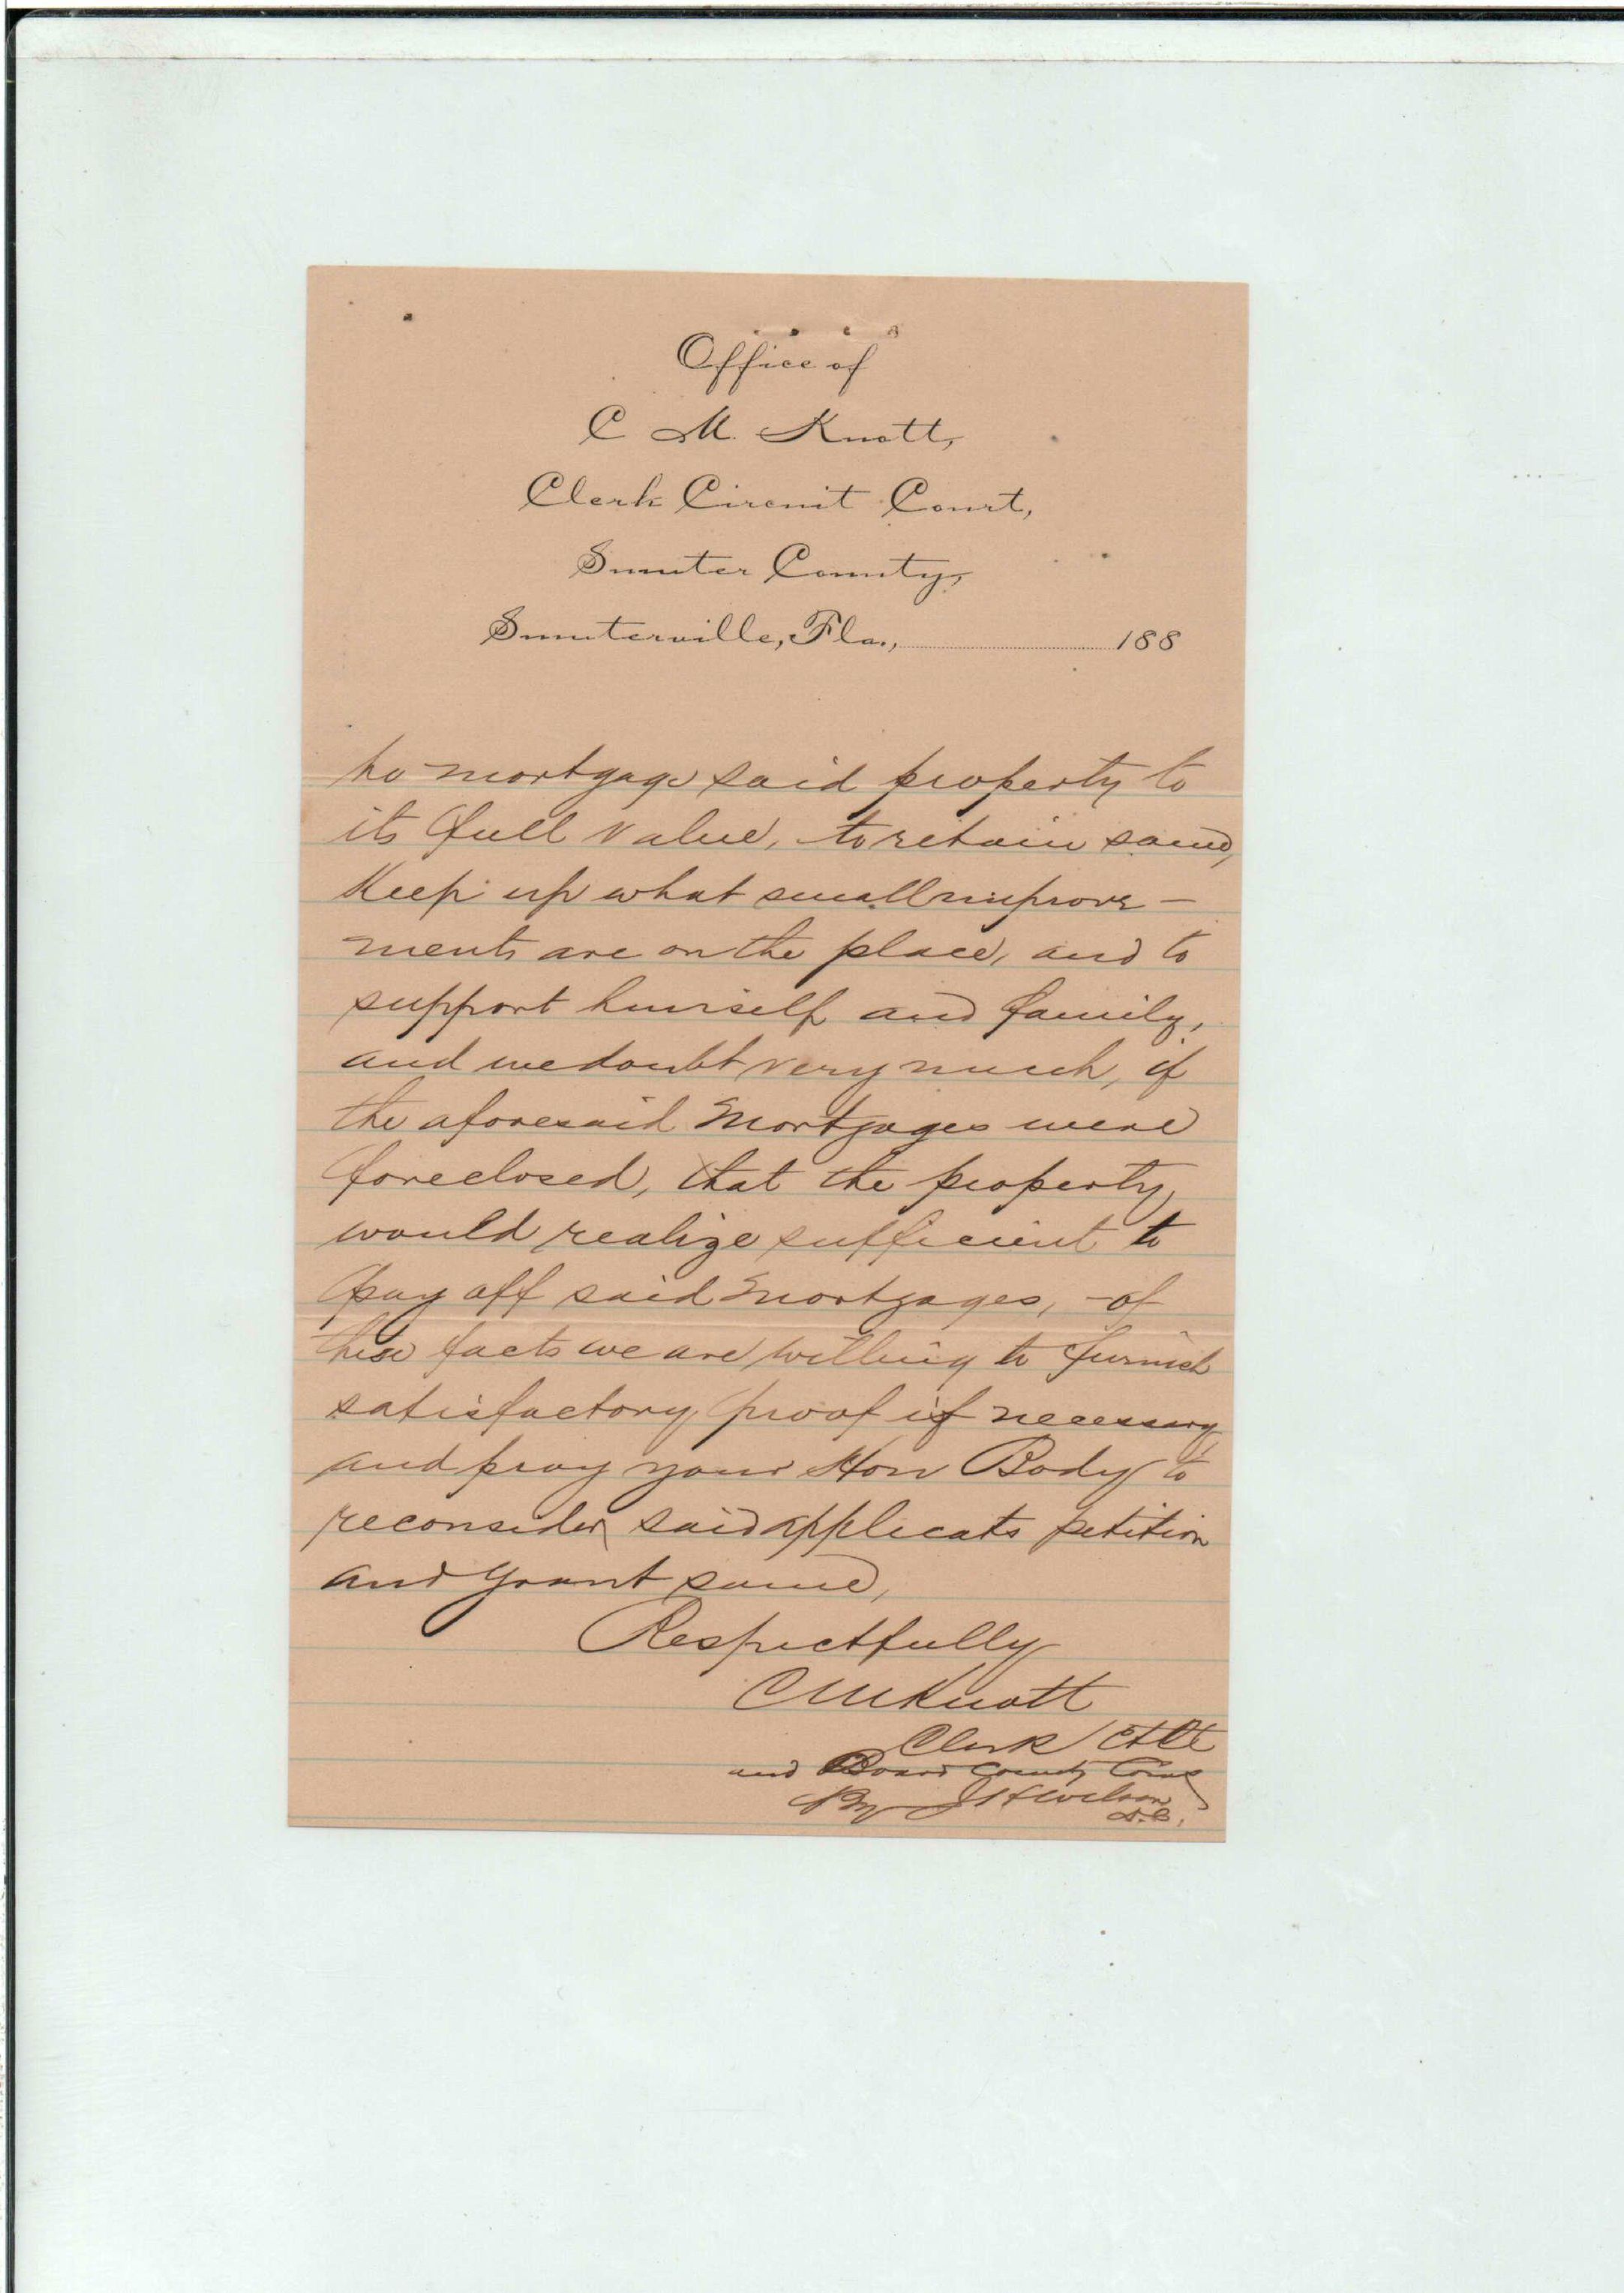 Office of
C M. Knott,
Clerk Circuit Court,
Sumter County,
Sumterville, Fla., 188
to mortgage said property to
its full value, to retain same,
Keep up what small improve-
ments are on the place, and to
support himself and family,
and we doubt very much, if
the aforesaid Mortgages were
foreclosed, that the property
would realize sufficient to
pay off said Mortgages, - of
these facts we are willing to furnish
satisfactory proof if necessary
and pray your Hon Body to
reconsider said applicats petition
and grant same,
Respectfully
C M Knott
Clerk Ct
and Board County Coms
By J H Wilson
D.C.